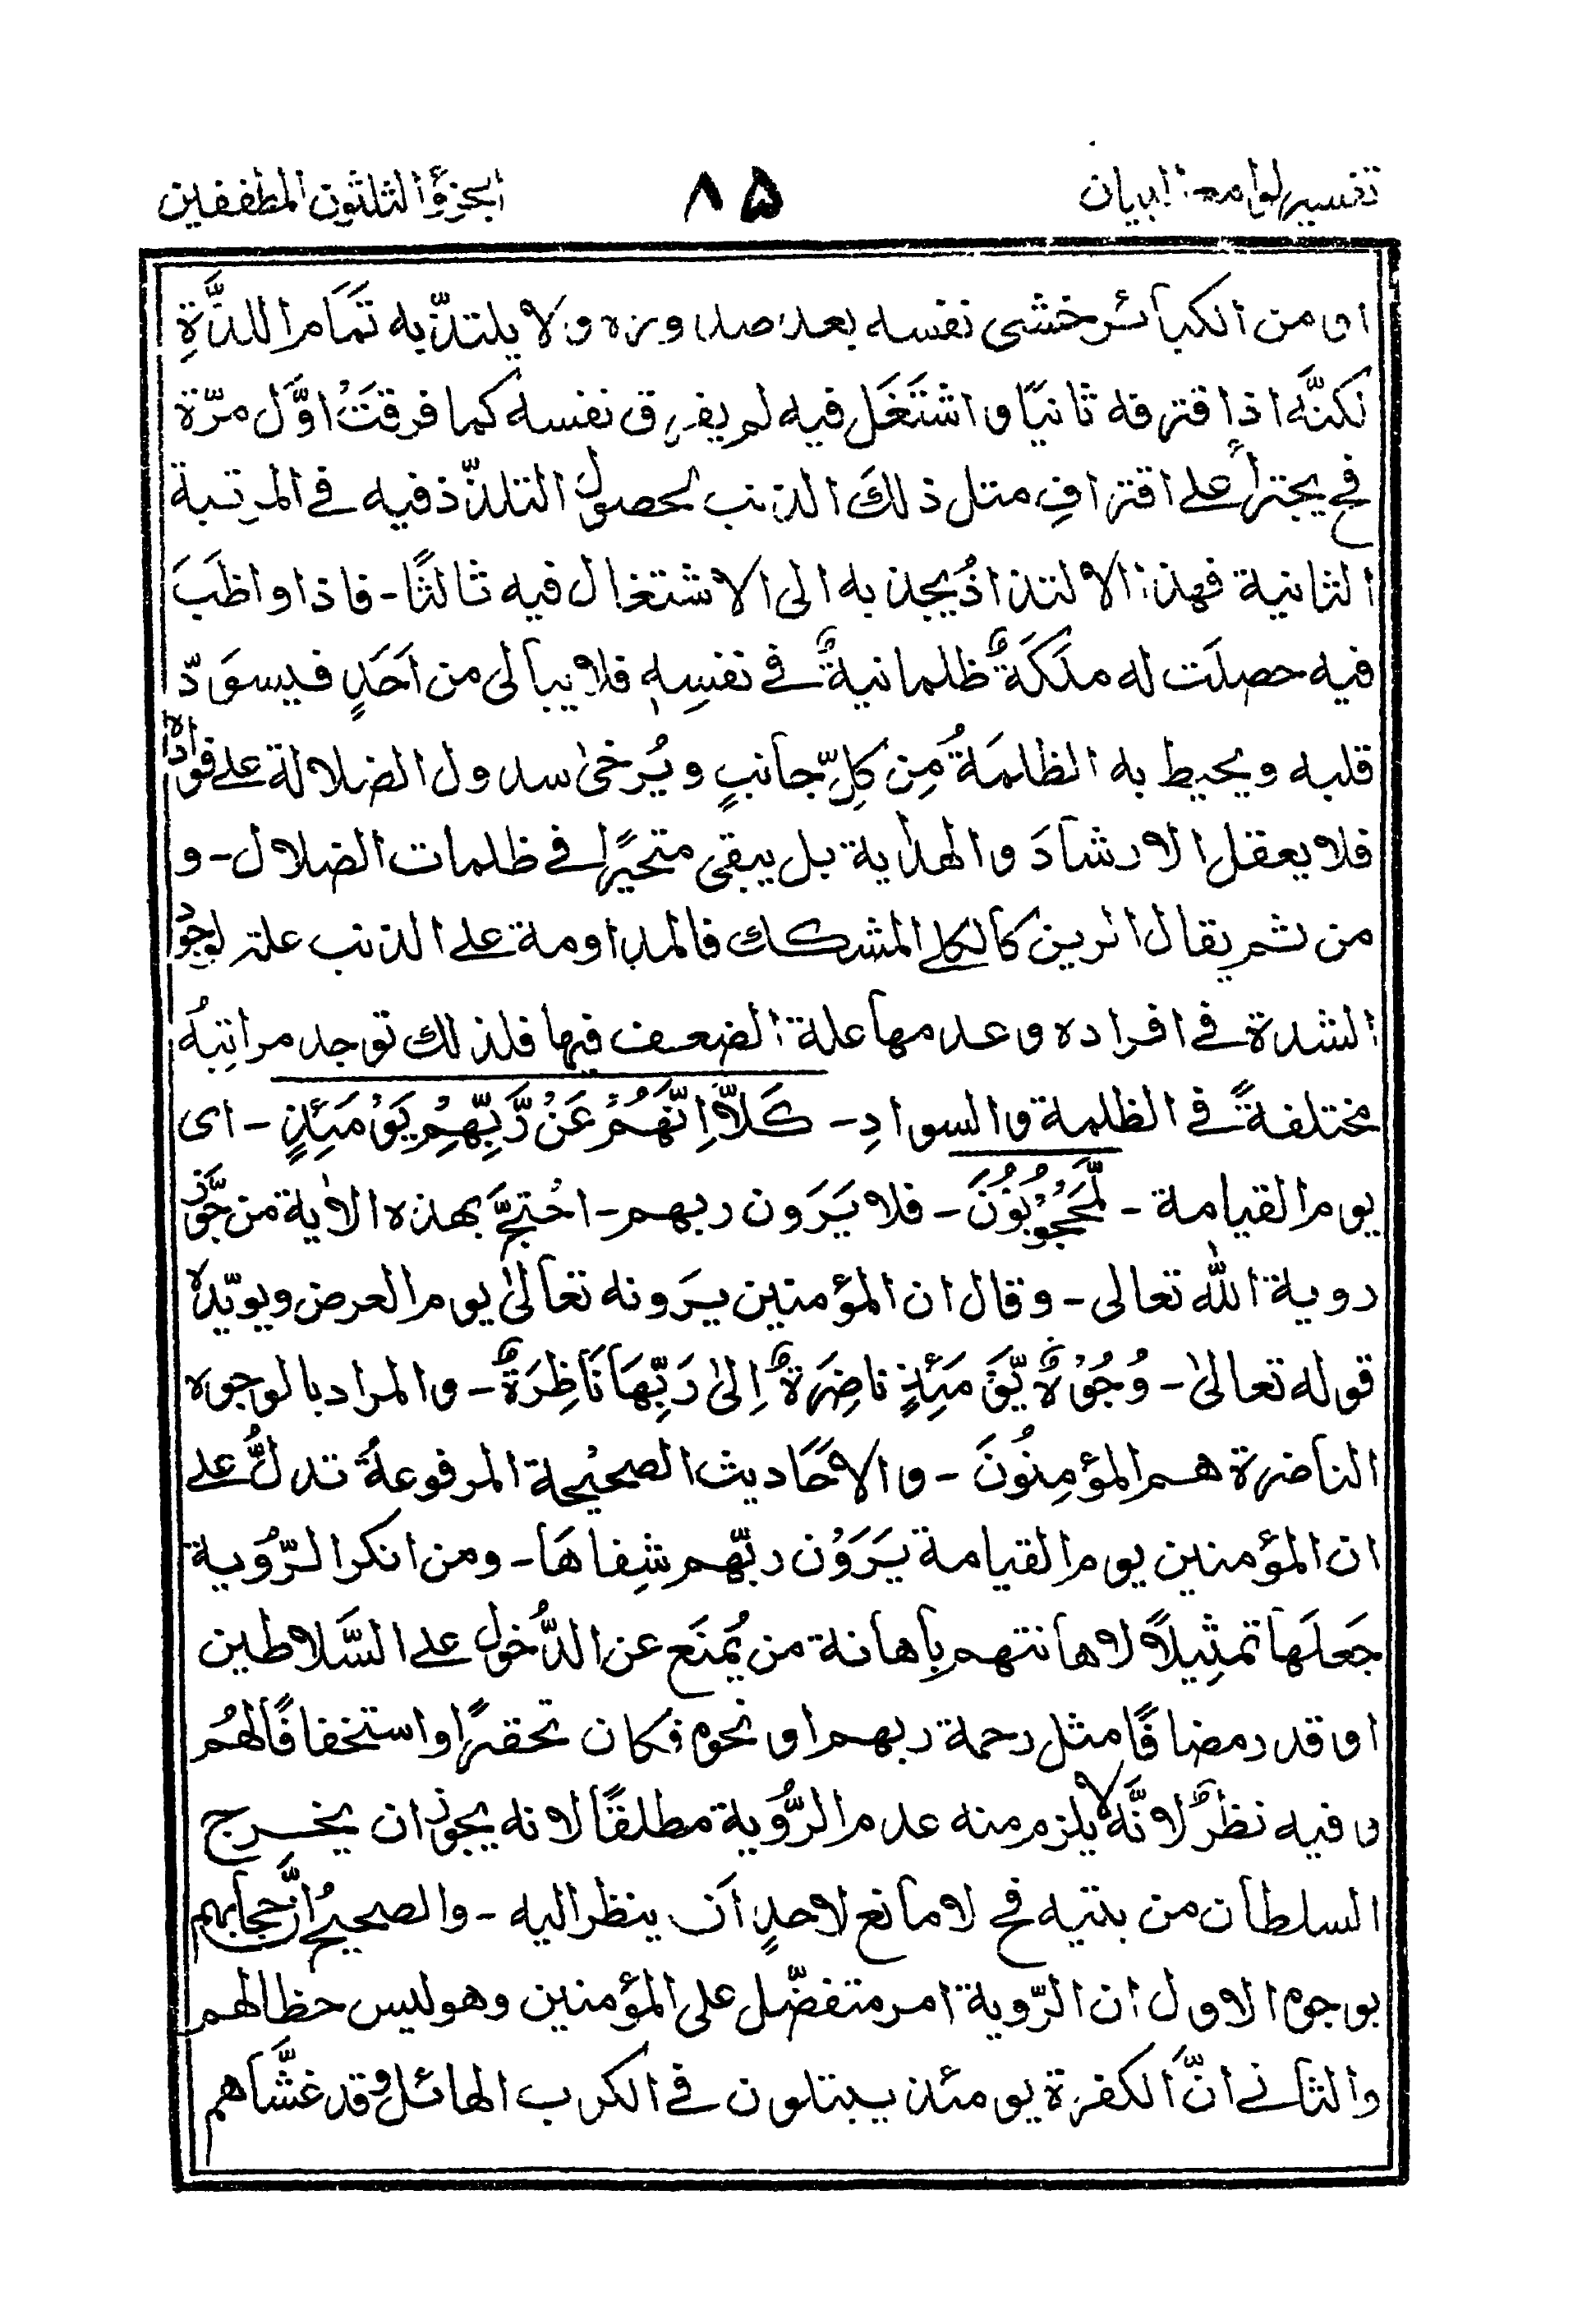 تفسير لوامع البيان ٨٥ الجزؤ الثلثون المطففين
او من الكبآئر خشى نفسه بعد صدوره ولا يلتذّ به تَمَام اللذَّةِ
لكنَّه اذا قترفه ثانيًا واشتَغَل فيه لم يفرق نفسه كما فرقتَ اوَّل مرّة
فح يجترأ على اقترافِ مثل ذلكَ الذنب لحصول التلذّذ فيه فے المرتبة
الثانية فهذا الالتذاذُ يجذبه الى الاشتغال فيه ثالثًا - فاذا واظَبَ
فيه حصلَت له ملَكَةٌ ظلمانيةٌ فے نفسِهٖ فلا يبآلى من اَحَدٍ فيسوَدّ
قلبه ويحيط به الظلمَةُ مِن كلِّ جانبٍ ويُرخىٰ سدول الضلالة على فوادهٖ
فلا يعقل الارشادَ والهدٰاية بل يبقى متحيًرا فے ظلمات الضلال - و
من ثم يقال الرين كالكلے المشكك فالمداومة على الذنب علة لوجود
الشدة فے افراده وعدمها علة الضعف فيها فلذلك توجد مراتِبهُ
مختلفةً فے الظلمة والسوادِ - كَلَّآ اِنَّهُمْ عَنْ رَّبِّهِمْ يَوْمَئِذٍ - اى
يوم القيامة - لَّمَحْجُوْبُوْنَ - فلا يَرَون ربهم - احْتجَّ بهذه الاٰية من جَوَّز
روية الله تعالى - وقال ان المؤمنين يرَونه تعآلىٰ يوم العرض ويويّده
قوله تعالىٰ - وُجُوْهٌ يَّوْمَئِذٍ ناضِرَةٌ اِلىٰ رَبِّهَا نَاظِرَةٌ - والمراد بالوجوه
الناضرة هم المؤمِنُونَ - والاحَاديث الصحيْحة المرفوعةُ تدلُّ على
ان المؤمنين يوم القيامة يَرَوْن ربّهم شِفاهَا - ومن انكر الرّوية
جَعلَها تمثِيلًا لاهانتهم بِاهانة من يُمنَع عن الدُّخول على السَّلاطين
او قدر مضافًا مثل رحمة ربهم او نحوه فكان تحقيرًا واستخفافًا لهُم
و فيه نظرٌ لانَّه لا يلزم منه عدم الرُّوية مطلقًا لانه يجوز ان يخرج
السلطان من بيته فح لا مانع لاحدٍ اَن ينظر اليه - والصحيحُ انَّ حجابهم
بوجوه الاول ان الرّوية امر متفضّل على المؤمنين وهو ليس حظا لهم
والثانے انَّ الكفرة يومئذ يبتلون فے الكرب الهائل وقد غشَّاهم